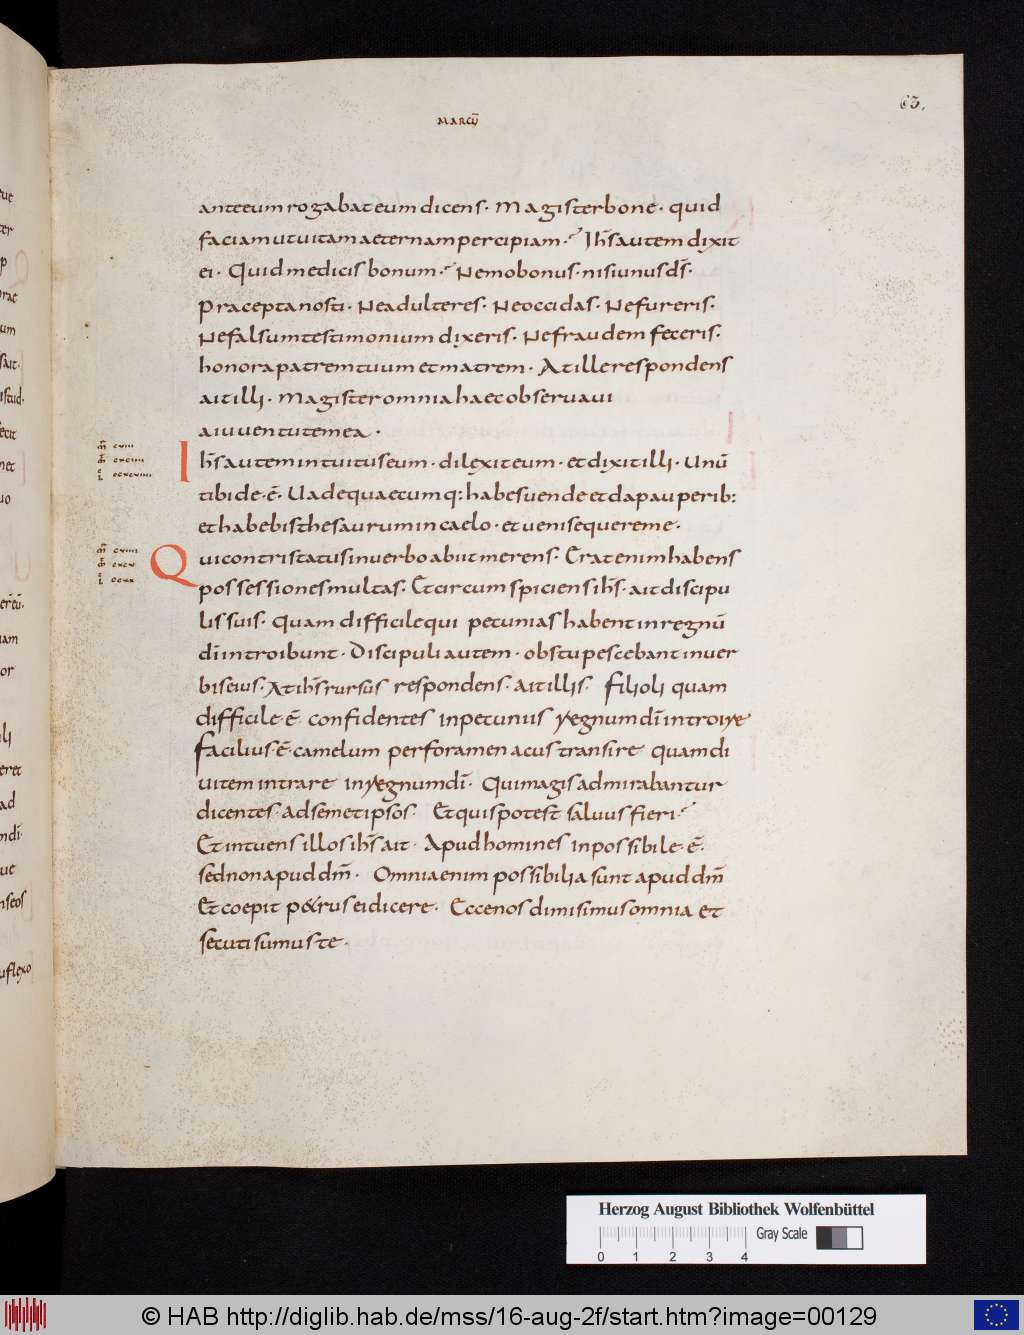 63.
MARCŪ
anteeum rogabat eum dicens. Magister bone. quid
faciam ut uitam aeternam percipiam. Ih̄s autem dixit
ei. Quid me dicis bonum. Nemo bonus. nisi unus d̄s.
Praecepta nosti. Ne adulteres. Ne occidas. Ne fureris.
Ne falsum testimonium dixeris. Ne fraudem feceris.
honora patrem tuum et matrem. At ille respondens
ait illi. Magister omnia haec obseruaui
a iuuentute mea.
Ih̄s autem intuitus eum. dilexit eum. et dixit illi. Unū
tibi de.ē. Uade quaecumq: habes uende et da pauperib:
et habebis thesaurum in caelo. et ueni sequere me.
Qui contristatus in uerbo abiit merens. Erat enim habens
possessiones multas. Et circumspiciens ih̄s. ait discipu
lis suis. Quam difficile qui pecunias habent in regnū
dī introibunt. Discipuli autem. obstupescebant in uer
bis eius. At ih̄s rursus respondens. ait illis. Filioli quam
difficile.ē. confidentes in pecuniis regnum dī introire
Facilius ē. camelum per foramen acus transire quam di
uitem intrare in regnum dī. Qui magis admirabantur
dicentes. ad semetipsos. Et quis potest saluus fieri.
Et intuens illos ih̄s ait. Apud homines inpossibile.ē.
sed non apud dm̄. Omnia enim possibilia sunt apud dm̄
Et coepit petrus ei dicere. Ecce nos dimisimus omnia et
secuti sumus te.
Herzog August Bibliothek Wolfenbüttel
0 1 2 3 4
Gray Scale
© HAB http://diglib.hab.de/mss/16-aug-2f/start.htm?image=00129